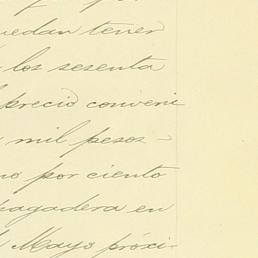 uedan tener
los sesenta
precio conveni
mil pesos-
no por ciento
pagadera en
Mayo próxi-